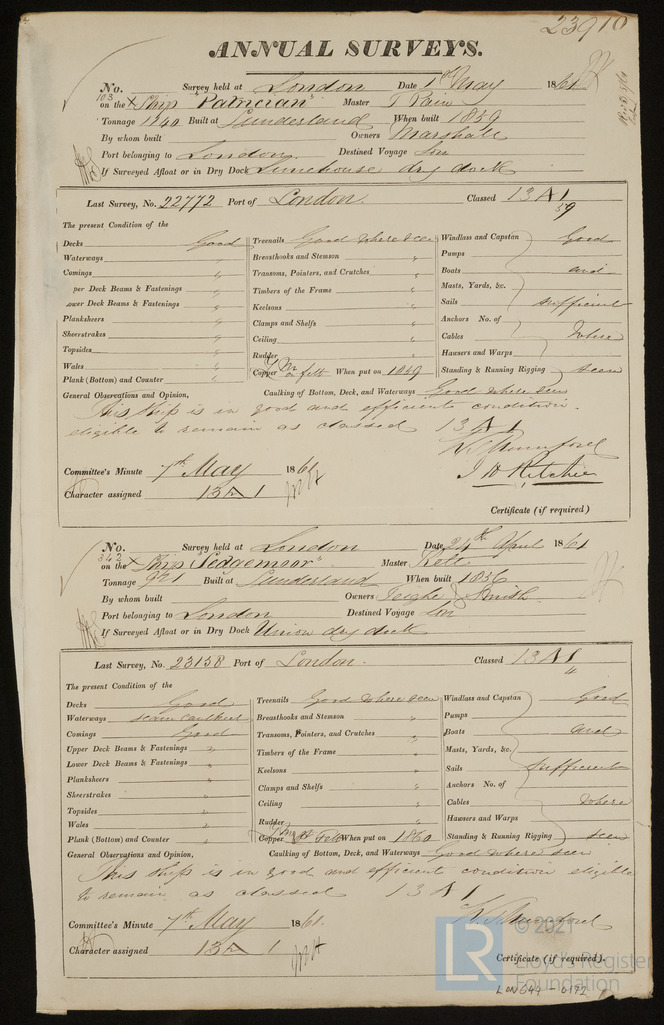 23910
ANNUAL SURVEYS.
No. 103 Survey held at London Date 1st May 1861
on the Ship "Patrician" Master T Pain
Tonnage 1240 Built at Sunderland When built 1859
By whom built Owners Marshall
Port belonging to London Destined Voyage
If Surveyed Afloat or in Dry Dock Limehouse dry dock
Last Survey, No. 22772 Port of London. Classed 13 A 1
59
The present Condition of the
Decks Good Treenails Good where seen Windlass and Capstan Good
Waterways " Breasthooks and Stemson " Pumps
Comings " Transoms, Pointers, and Crutches " Boats and
per Deck Beams & Fastenings " Timbers of the Frame " Masts, Yards, &c.
ower Deck Beams & Fastenings " Keelsons " Sails sufficient
Planksheers " Clamps and Shelfs " Anchors No. of
Sheerstrakes " Ceiling " Cables where
Topsides " Rudder Hawsers and Warps
Wales " Copper on felt When put on 1859 Standing & Running Rigging seen
Plank (Bottom) and Counter " Caulking of Bottom, Deck, and Waterways Good where seen
General Observations and Opinion,
This Ship is in good and efficient condition.
eligible to remain as classed 13 A 1
J H Ritchie
Committee's Minute 7th May 1861
Character assigned 13 A 1
Certificate (if required)
No. 342 Survey held at London Date 24th April 1861
on the Ship "Sedgemoor" Master
Tonnage 921 Built at Sunderland When built 1856
By whom built Owners Smith
Port belonging to London Destined Voyage
If Surveyed Afloat or in Dry Dock Union dry dock
Last Survey, No. 23158 Port of London. Classed 13 A 1
The present Condition of the
Decks Good Treenails Good where seen Windlass and Capstan Good
Waterways seam caulked Breasthooks and Stemson " Pumps
Comings Good Transoms, Pointers, and Crutches " Boats and
Upper Deck Beams & Fastenings " Timbers of the Frame " Masts, Yards, &c.
Lower Deck Beams & Fastenings " Keelsons " Sails sufficient
Planksheers " Clamps and Shelfs " Anchors No. of
Sheerstrakes " Ceiling " Cables where
Topsides " Rudder Hawsers and Warps
Wales " Copper Felt When put on 1860 Standing & Running Rigging seen
Plank (Bottom) and Counter " Caulking of Bottom, Deck, and Waterways Good where seen
General Observations and Opinion,
This Ship is in good and efficient condition eligible
to remain as classed 13 A 1
Committee's Minute 7th May 1861.
Character assigned 13 A 1
Certificate (if required).
LR © 2021
Lloyd's Register
Foundation
LON644-0192